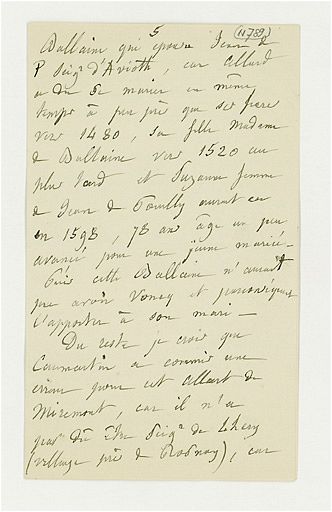 5 (11.789)
Ballaine qui épousa Jean de
P Seigr d'Avioth, car Allard
a du se marier en même
temps à peu près que son frère
vers 1480, sa fille Madame
de Ballaine vers 1520 au
plus tard et Suzanne femme
de Jean de Pouilly aurait eu
en 1598, 78 ans âge un peu
avancé pour une jeune mariée_
Puis cette Ballaine n'aurait
pu avoir Voncq et par conséquent
l'apporter à son mari _
Du reste je crois que
Caumartin a commis une
erreur pour cet Allart de
Miremont, car il n'a
pas dû être Seigr de Lhéry
(village près de Rosnay), car